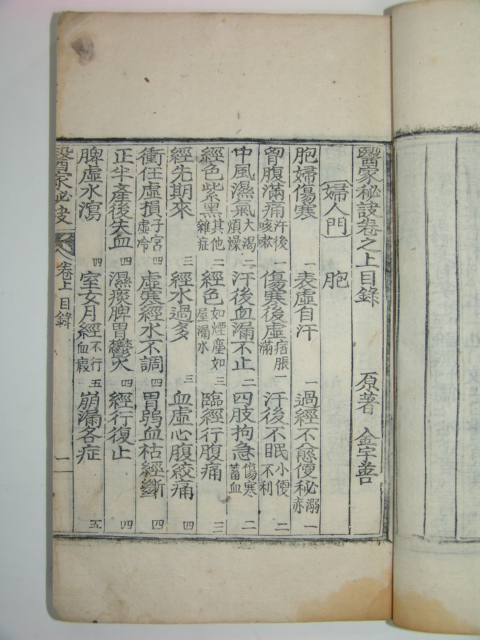 醫家秘訣卷之上目錄 原著 金宇善
婦人門 胞
胞婦傷寒 一 表虛自汗 一 過經不愈便秘溺赤 一
胷腹滿痛汗後咳嗽 一 傷寒後虛痞脹滿 一 汗後不眠小便不利 二
中風濕氣大渴煩燥 二 汗後血漏不止 二 四肢拘急傷寒蓄血 二
經色紫黑其他雜症 二 經色如煙塵如屋漏水 三 臨經行腹痛 三
經先期來 三 經水過多 三 血虛心腹絞痛 三
衝任虛損子宮虛冷 四 虛寒經水不調 四 胃弱血枯經斷 四
正半產後失血 四 濕痰脾胃鬱火 四 經行復止 四
脾虛水瀉 四 室女月經不行血瘕 五 崩漏各症 五
醫家秘訣 卷上 目錄 一